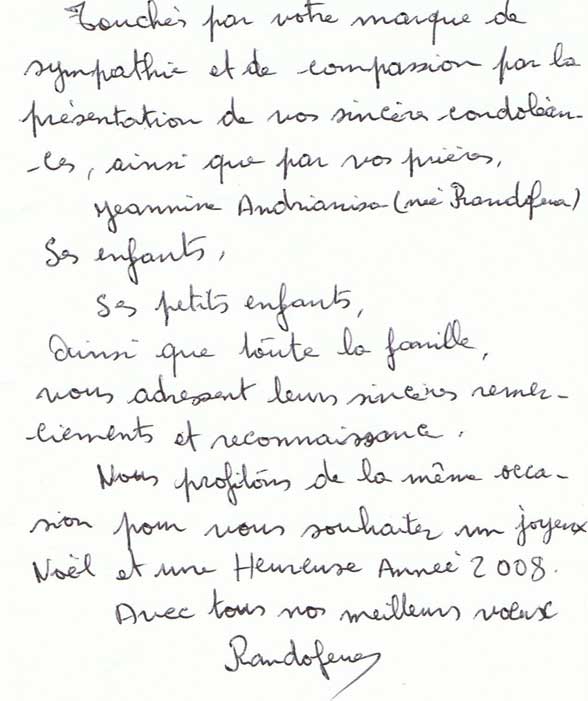 Touchés par votre marque de
sympathie et de compassion par la
présentation de vos sincères condoléan-
-ces, ainsi que par vos prières,
Jeannine Andrianisa (née Randofena)
Ses enfants,
Ses petits enfants,
Ainsi que toute la famille,
vous adressent leurs sincères remer-
ciements et reconnaissance.
Nous profitons de la même occa-
sion pour vous souhaiter un joyeux
Noël et une Heureuse Année 2008.
Avec tous nos meilleurs vœux
Randofena